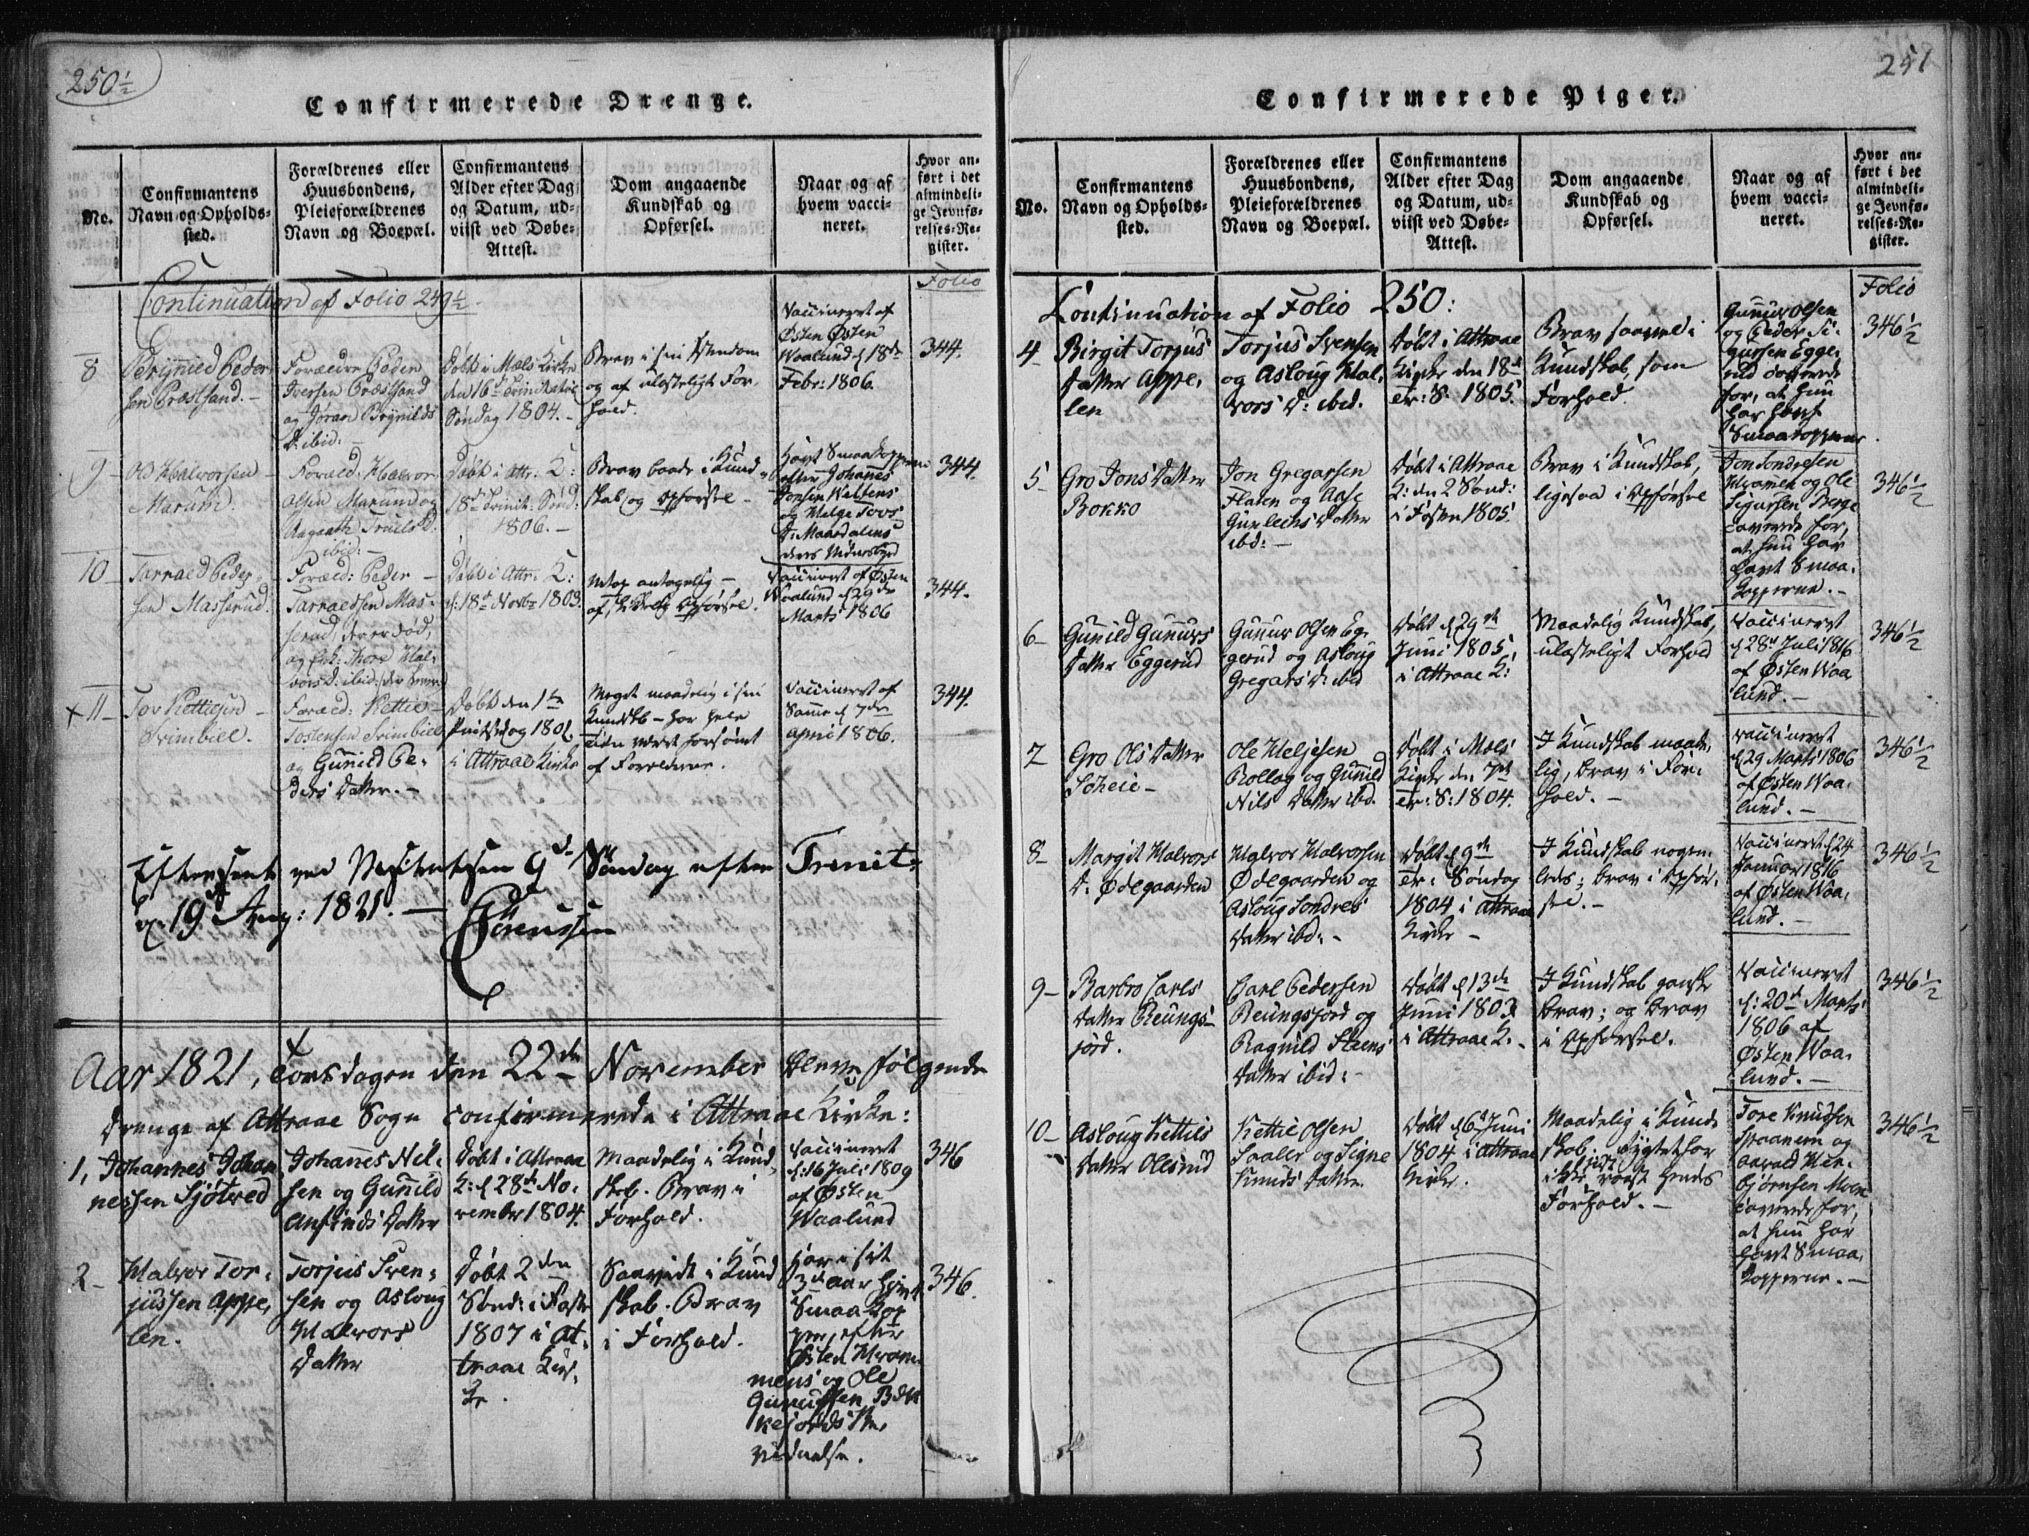 250½
Confirmerede Drenge.
No.
Confirmantens
Navn og Opholds-
sted.
Forældrenes eller
Huusbondens,
Pleieforældrenes
Navn og Boepæl.
Confirmantens
Alder efter Dag
og Datum, ud-
viist ved Døbe-
Attest.
Dom angaaende
Kundskab og
Opførsel.
Naar og af
hvem vacci-
neret.
Hvor an-
ført i det
almindeli-
ge Jevnfø-
relses-Re-
gister.
Folio
Continuation af Folio 249½.
8
Brynild Peder-
sen Præstsand.
Forældre Peder
Iversen Præstsand
og Jøran Brynilds
D. ibid:
Døbt i Mæls Kirke
den 16de Trinitatis
Søndag 1804.
Brav i sin
og af ulasteligt For-
hold.
Vaccineret af
Østen Østen
Waalund d. 18de
Febr: 1806.
344.
9
Ol Halvorsen
Marum.
Foræld. Halvor
Olsen Marum og
Aagaath Truels D.
ibid:
Døbt i Attr. K:
18de Trinit. Sønd:
1806.
Brav baade i Kund-
skab og Opførsel
Havt Smaakopperne
efter Johanes
og Helge Tovs
D: Maardalens
deres Vidnesbyrd
344.
10
Tarrald Peder-
sen Masserud.
Foræld: Peder
Tarraldsen Mas-
serud, der er død,
og Enk. Thore Hal-
vors D. ibid:
Døbt i Attr. K:
d: 18de Novbr 1803.
Netop antagelig
af Opførsel.
Vaccineret af Østen
Waalund d 29de
Marts 1806
344.
x 11
Tov Kettilsen
Grimbill.
Foræld: Kettil
Tostensen Grimbill
og Gunild Pe-
ders Datter.
Døbt den 1ste
Pintsedag 1801
i Attraae Kirke
Meget maadelig i sin
Kundskb - har hele
Tiden været forsømt
af Forældrene.
Vaccineret af
Samme d 7de
April 1806.
344.
Efterseet ved Visitatsen 9de Søndag efter Trinit:
d. 19de Aug: 1821.
Sörenssen
Aar 1821, Torsdagen den 22de November bleve følgende
Drenge af Attraae Sogn confirmerede i Attraae Kirke:
1,
Johannes Johan
nessen Sjötved
Johanes Nil-
sen og Gunild
Anfinds Datter
Døbt i Attraae
K: d 28de No-
vember 1804.
Maadelig i Kund-
skab. Brav i
Forhold.
Vaccineret
d: 16 Juli 1809
af Østen
Waalund
346
2
Halvor Tor-
jussen Appe-
len.
Torjus Sven-
sen og Asloug
Halvors
Datter
Døbt 2den
Sønd: i Faste
1807 i At-
traae Kir-
ke.
Saavidt i Kund
skab. Brav
i Forhold.
Har i sit
3de Aar havt
Smaakop
per, efter
Østen
mens og Ole
Gunulfsen Bøk
kejords
vidnelse.
346.
251
Confirmerede Piger.
No.
Confirmantens
Navn og Opholds-
sted.
Forældrenes eller
Huusbondens,
Pleieforældrenes
Navn og Boepæl.
Confirmantens
Alder efter Dag
og Datum, ud-
viist ved Døbe-
Attest.
Dom angaaende
Kundskab og
Opførsel.
Naar og af
hvem vacci-
neret.
Hvor an-
ført i det
almindeli-
ge Jevnfø-
relses-Re-
gister.
Folio
Continuation af Folio 250:
4
Birgit Torjus
Datter Appe-
len
Torjus Svensen
og Asloug Hal-
vors D: ibid.
Døbt i Attraae
Kirke den 18de
Tr: S: 1805.
Brav saavel i
Kundskab, som
Forhold.
Gunur Olsen
og Peder Si-
gursen Egge-
rud
for, at hun
har havt
Smaakopperne.
346½
5
Gro Jons Datter
Bokko
Jon Gregarsen
Flaten og Aase
Gunleiks Datter
ibd:
Døbt i Attraae
K: den 2 Sønd:
i Fasten 1805.
Brav i Kundskab,
ligesaa i Opførsel
Jon Sondresen
og Ole
Sigursen Berge
caverede for,
at hun har
havt Smaa-
kopperne.
346½
6
Gunild Gunurs
Datter Eggerud
Gunur Olsen Eg-
gerud og Asloug
Gregars D: ibid
Døbt d 29de
Juni 1805,
i Attraae K:
Maadelig Kundskab,
ulasteligt Forhold
Vaccineret
d 28de Juli 1816
af Østen Waa
lund.
346½
7
Gro Ols Datter
Söheie
Ole Heljesen
Rollag og Gunild
Nils Datter ibid.
Døbt i Mæls
Kirke den 7de
Tr: S: 1804.
I Kundskab maade-
lig, brav i For-
hold.
Vaccineret
d 29 Marts 1806
af Østen Waa-
lund.
346½
8
Margit Halvors
D: Ødegaarden
Halvor Halvorsen
Ødegaarden og
Asloug Sondres
Datter ibd:
Døbt d 9de
Tr: Søndag
1804 i Attraae
Kirke
I Kundskab nogen-
leds; brav i Opfør-
sel.
Vaccineret d 24
Januar 1816
af Østen Waa-
lund.
346½
9
Barbro Carls
Datter Reungs-
jord.
Carl Pedersen
Reungsjord og
Ragnild Steens
Datter ibid:
Døbt d 13de
Juni 1803
i Attraae K.
I Kundskab ganske
brav; og brav
i Opførsel.
Vaccineret
d: 20de Marts
1806 af
Østen Waa-
lund.
346½
10
Asloug Kettils
Datter Olesrud
Kettil Olsen
Saaler og Signe
Knuds Datter
Døbt d 6 Juni
1804 i Attraae
Kirke.
Maadelig i Kund
skab.
ikke roest hendes
Forhold.
Tore Knudsen
Skaanem og
Aavald Hen-
Bjørnsen Moen
caverede for,
at hun har
havt Smaa-
kopperne.
346½